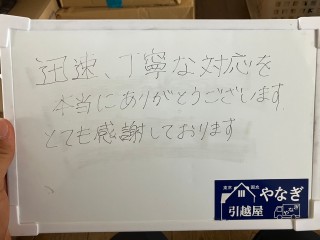 迅速、丁寧な対応を
本当にありがとうございます
とても感謝しております
やなぎ
引越屋